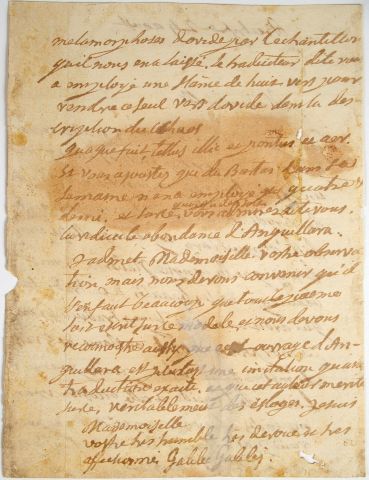 metamorphoses dovide par lechantillon
quil nous en a laissé, le traducteur dite vous
a employé une stance de huit vers pour
rendre ce seul vers dovide dans la des
cription du Chaos
quaque fuit tellus illic et pontus et aer
Et vous ajoustez que du Bartas dans sa
semaine n'en a employé que quatre
et demi, et
la ridicule abondance d'Anguillara.
Jadmet Mademoiselle vostre observa
tion mais nous devons convenir qu'il
sen faut beaucoup que tout le poeme
soit écrit sur ce modele, et nous devons
reconnoitre aussy que cet ouvrage d'An
guillara est plustost une imitation quune
traduction exacte, et que cet auteur merite
sur ce, veritablement des éloges. Je suis
Mademoiselle
vostre tres humble tres devoué et tres
affectionné Galilée Galilei